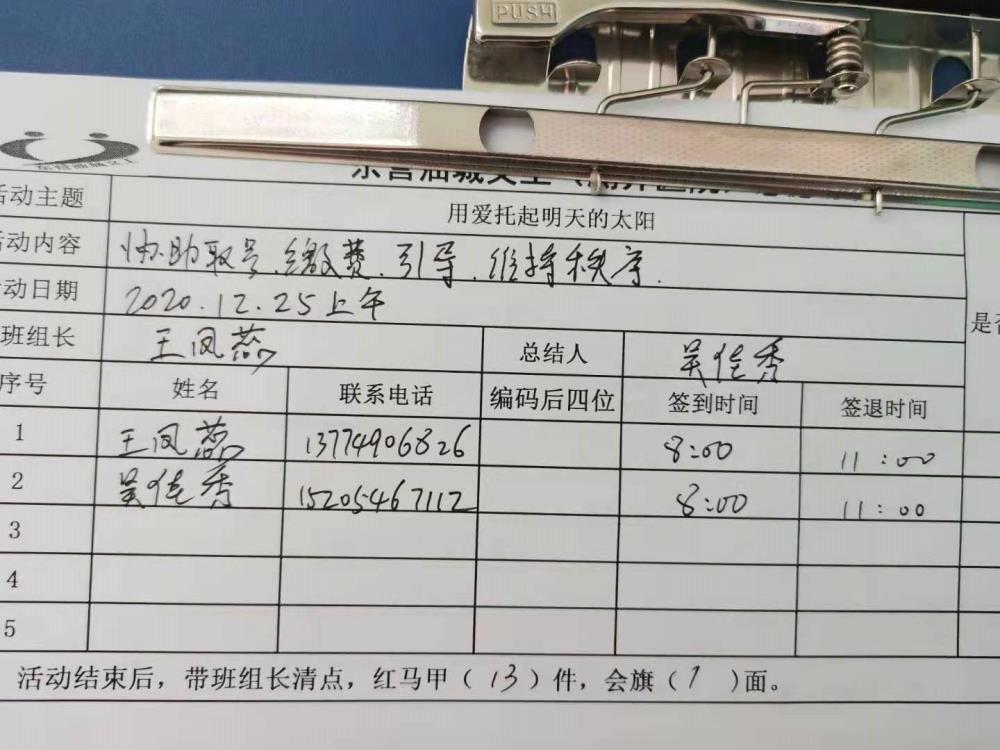 PUSH
东营油城义工
活动主题 用爱托起明天的太阳
活动内容 协助取号、缴费、引导、维持秩序.
动日期 2020.12.25上午
班组长 王凤蕊 总结人 吴佳秀
是否
序号 姓名 联系电话 编码后四位 签到时间 签退时间
1 王凤蕊 13774906826 8:00 11:00
2 吴佳秀 15205467112 8:00 11:00
3
4
5
活动结束后，带班组长清点，红马甲（13）件，会旗（1）面。